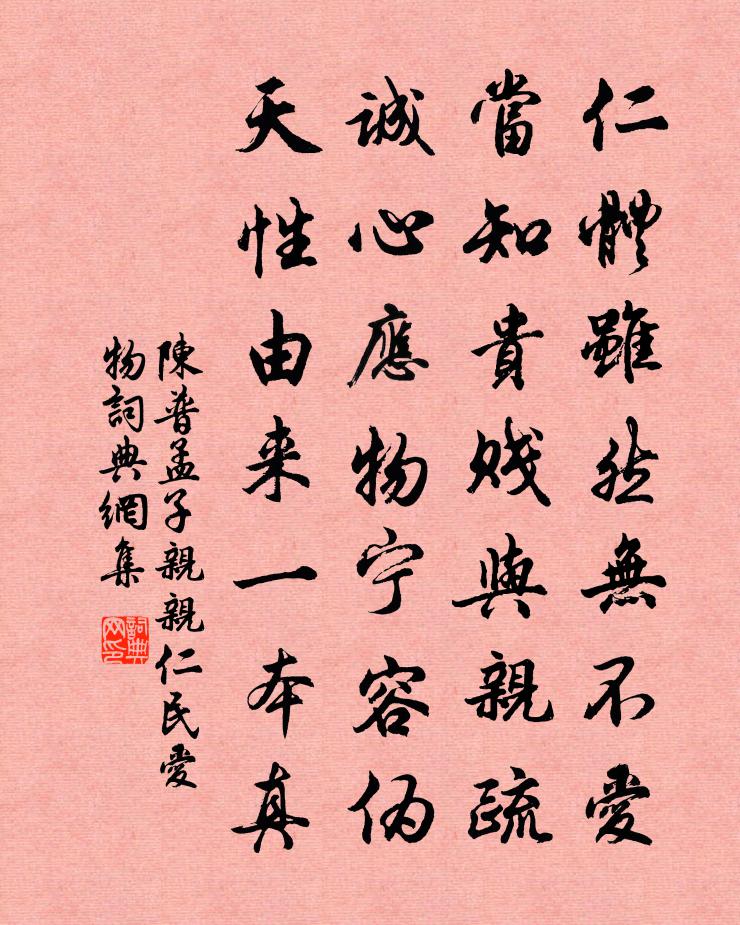 仁體雖然無不愛
當知貴贱與親疏
誠心應物宁容伪
天性由来一本真
陳普孟子親親仁民愛
物詞典網集
詞典网印